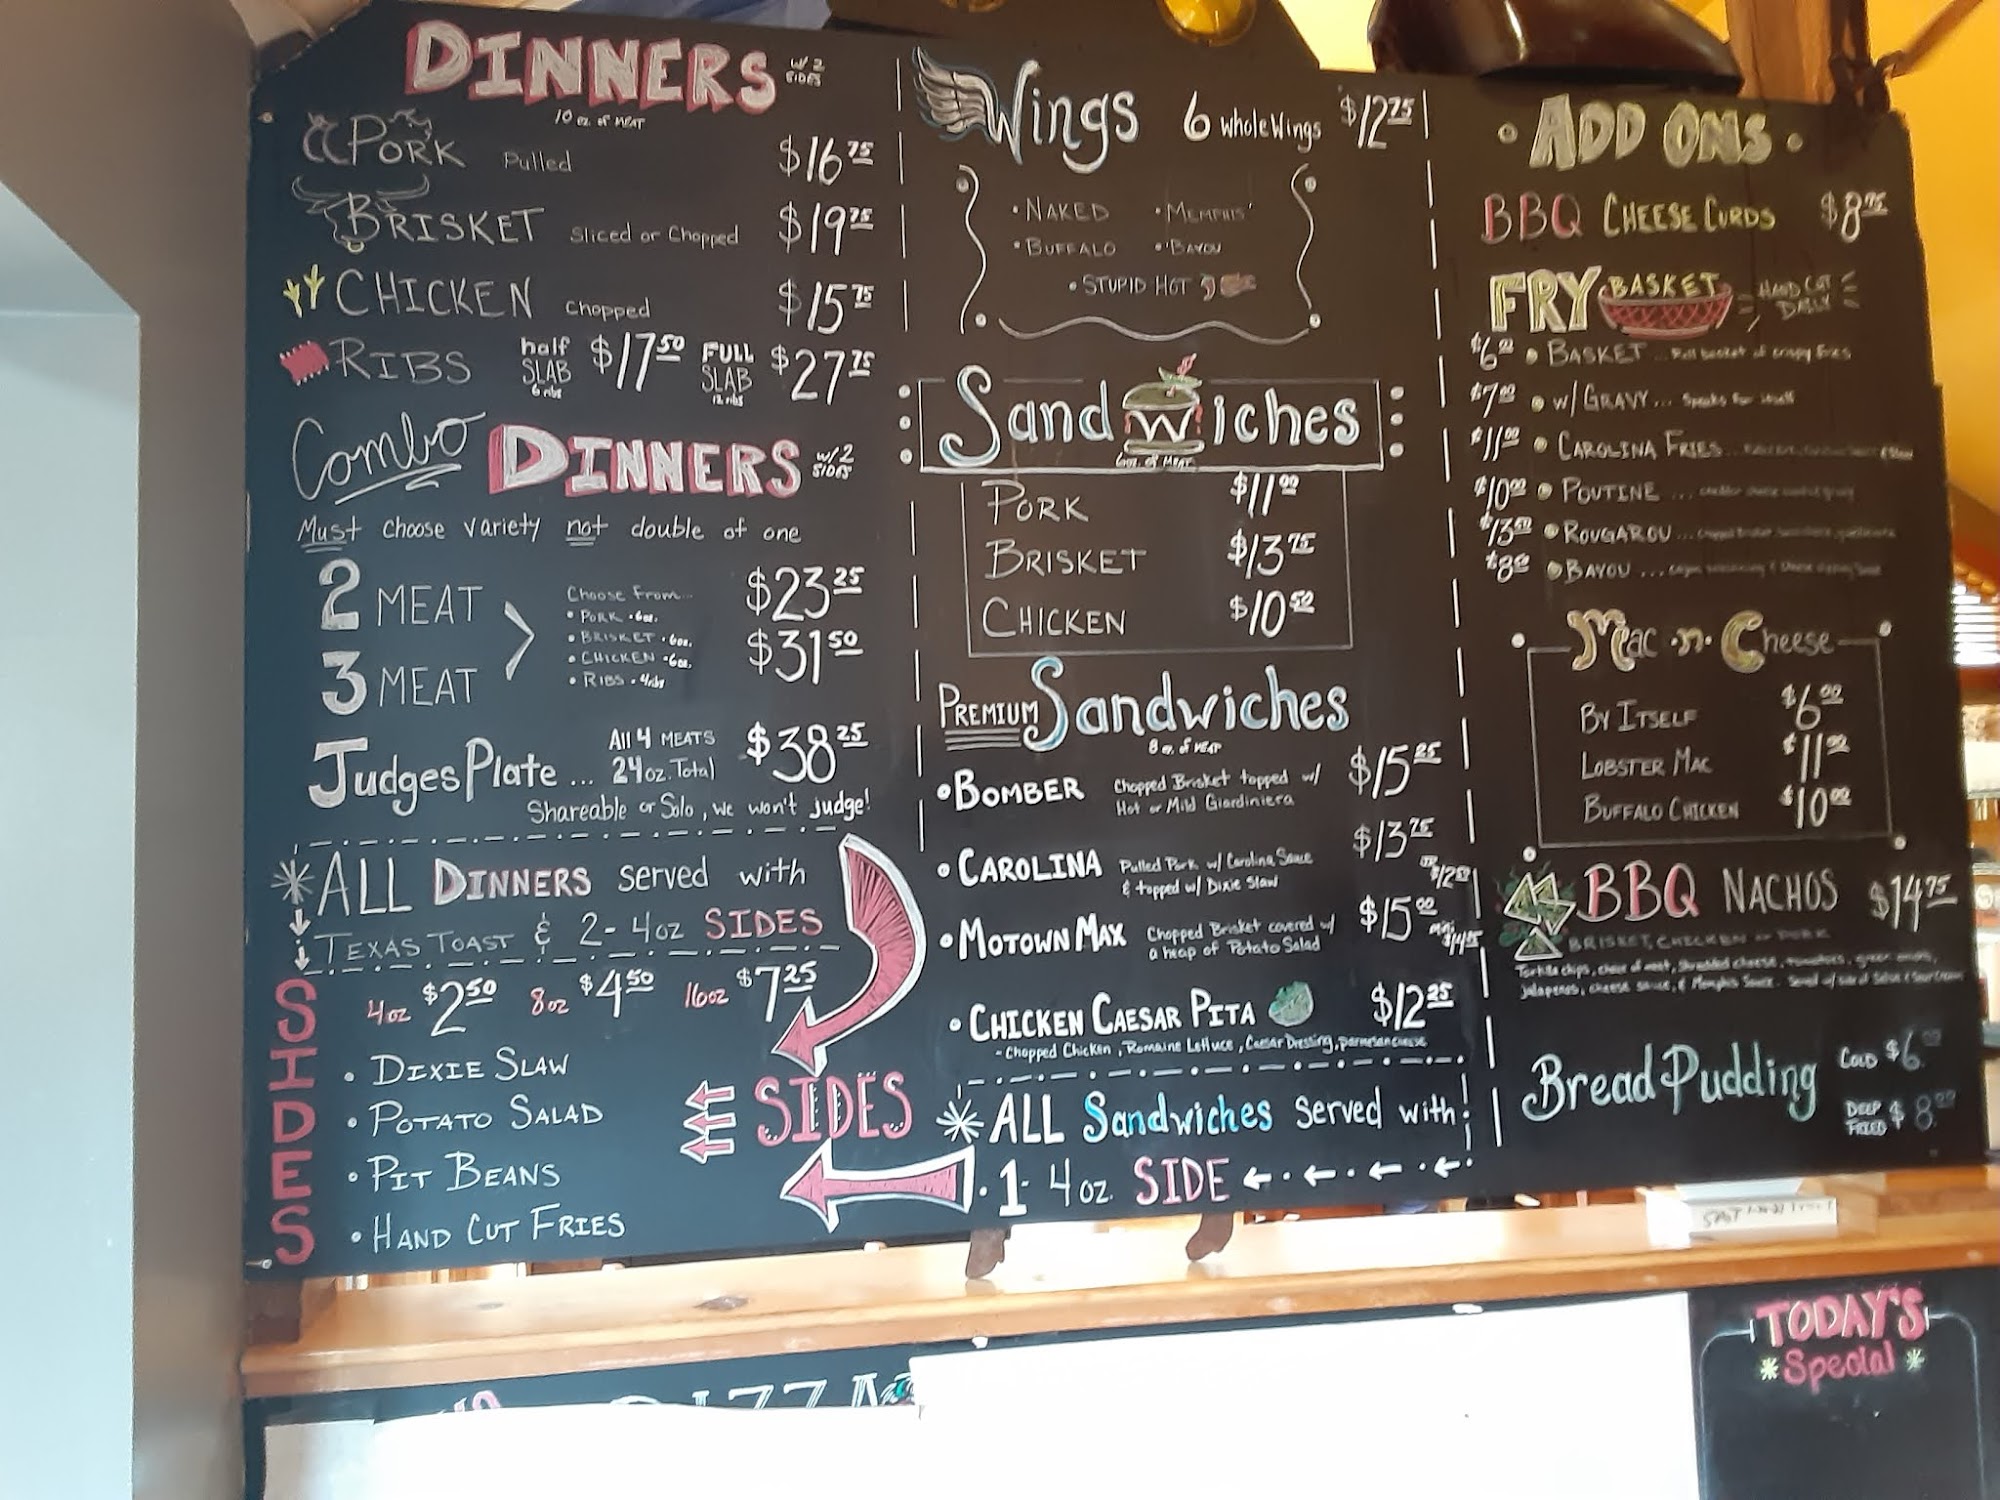 DINNERS w/2 SIDES
10 oz. of MEAT
PORK Pulled $16.75
BRISKET Sliced or Chopped $19.75
CHICKEN Chopped $15.75
RIBS half SLAB 6 ribs $17.50 FULL SLAB 12 ribs $27.75
Combo DINNERS w/2 SIDES
Must choose variety not double of one
2 MEAT $23.25
3 MEAT $31.50
Choose from...
• PORK • 6oz.
• BRISKET • 6oz.
• CHICKEN • 6oz.
• RIBS • 4ribs
Judges Plate ... All 4 MEATS 24oz. Total $38.25
Shareable or Solo, we won't judge!
*ALL DINNERS served with
TEXAS TOAST & 2-4oz SIDES
SIDES
4oz $2.50 8oz $4.50 16oz $7.25
• DIXIE SLAW
• POTATO SALAD
• PIT BEANS
• HAND CUT FRIES
SIDES
Wings 6 whole Wings $12.75
• NAKED • MEMPHIS
• BUFFALO • BAYOU
• STUPID HOT
Sandwiches
6oz. of MEAT
PORK $11.00
BRISKET $13.75
CHICKEN $10.50
PREMIUM Sandwiches
8 oz. of MEAT
• BOMBER Chopped Brisket topped w/ $15.25
Hot or Mild Giardiniera
• CAROLINA Pulled Pork w/ Carolina Sauce $13.75
& topped w/ Dixie Slaw
• MOTOWN MAX Chopped Brisket covered w/ $15.00
a heap of Potato Salad
• CHICKEN CAESAR PITA $12.25
- Chopped Chicken, Romaine Lettuce, Caesar Dressing, parmesan cheese
*ALL Sandwiches served with:
• 1- 4oz. SIDE
• ADD ONS •
BBQ CHEESE CURDS $8.75
FRY BASKET HAND CUT DAILY
• BASKET ... Full basket of crispy fries
$7.00 • w/ GRAVY ... Speaks for itself
$11.00 • CAROLINA FRIES ...
$10.00 • POUTINE ...
$13.50 • ROUGAROU ...
• BAYOU ...
Mac -n- Cheese
BY ITSELF $6.00
LOBSTER MAC $11.00
BUFFALO CHICKEN $10.00
BBQ NACHOS $14.75
BRISKET, CHICKEN or PORK
Tortilla chips, choice of meat, shredded cheese, tomatoes, green onions,
jalapenos, cheese sauce, & Memphis Sauce. Served w/ side of Salsa & Sour Cream
Bread Pudding COLD $6.
DEEP FRIED $8.
TODAY'S
* Special *